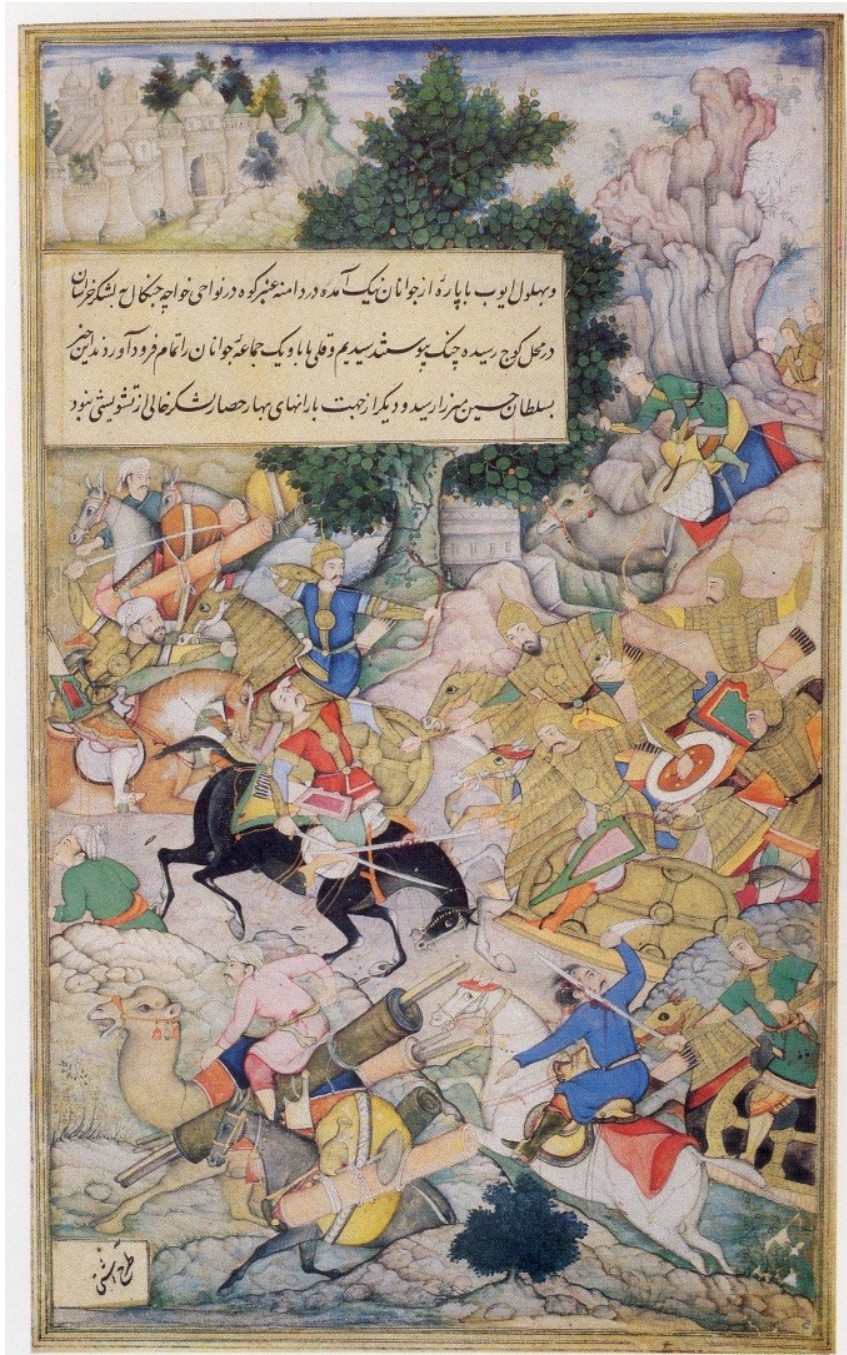 و بهلول ایوب با پارهٔ از جوانان نیک آمده در دامنه عنبر کوه در نواحی خواجه چنکال بلشکر خراسان
در محل کوچ رسیده چنک پیوستند سیدیم و قلی بابا و یک جماعهٔ جوانان را تمام فرود آوردند این خبر
بسلطان حسین میرزا رسید و دیکر از جهت بارانهای بهار حصار لشکر خالی از تشویشی نبود
طرح